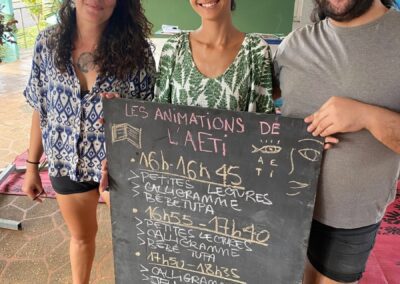 LES ANIMATIONS DE
L'AETI
AETI
• 16h - 16h 45
> PETITES LECTURES
> CALLIGRAMME
> BEBETUPA
• 16h55 - 17h40
> PETITES LECTURES
> CALLIGRAMME
> BEBE TUPA
• 17h50 - 18h35
> CALLIGRAMME